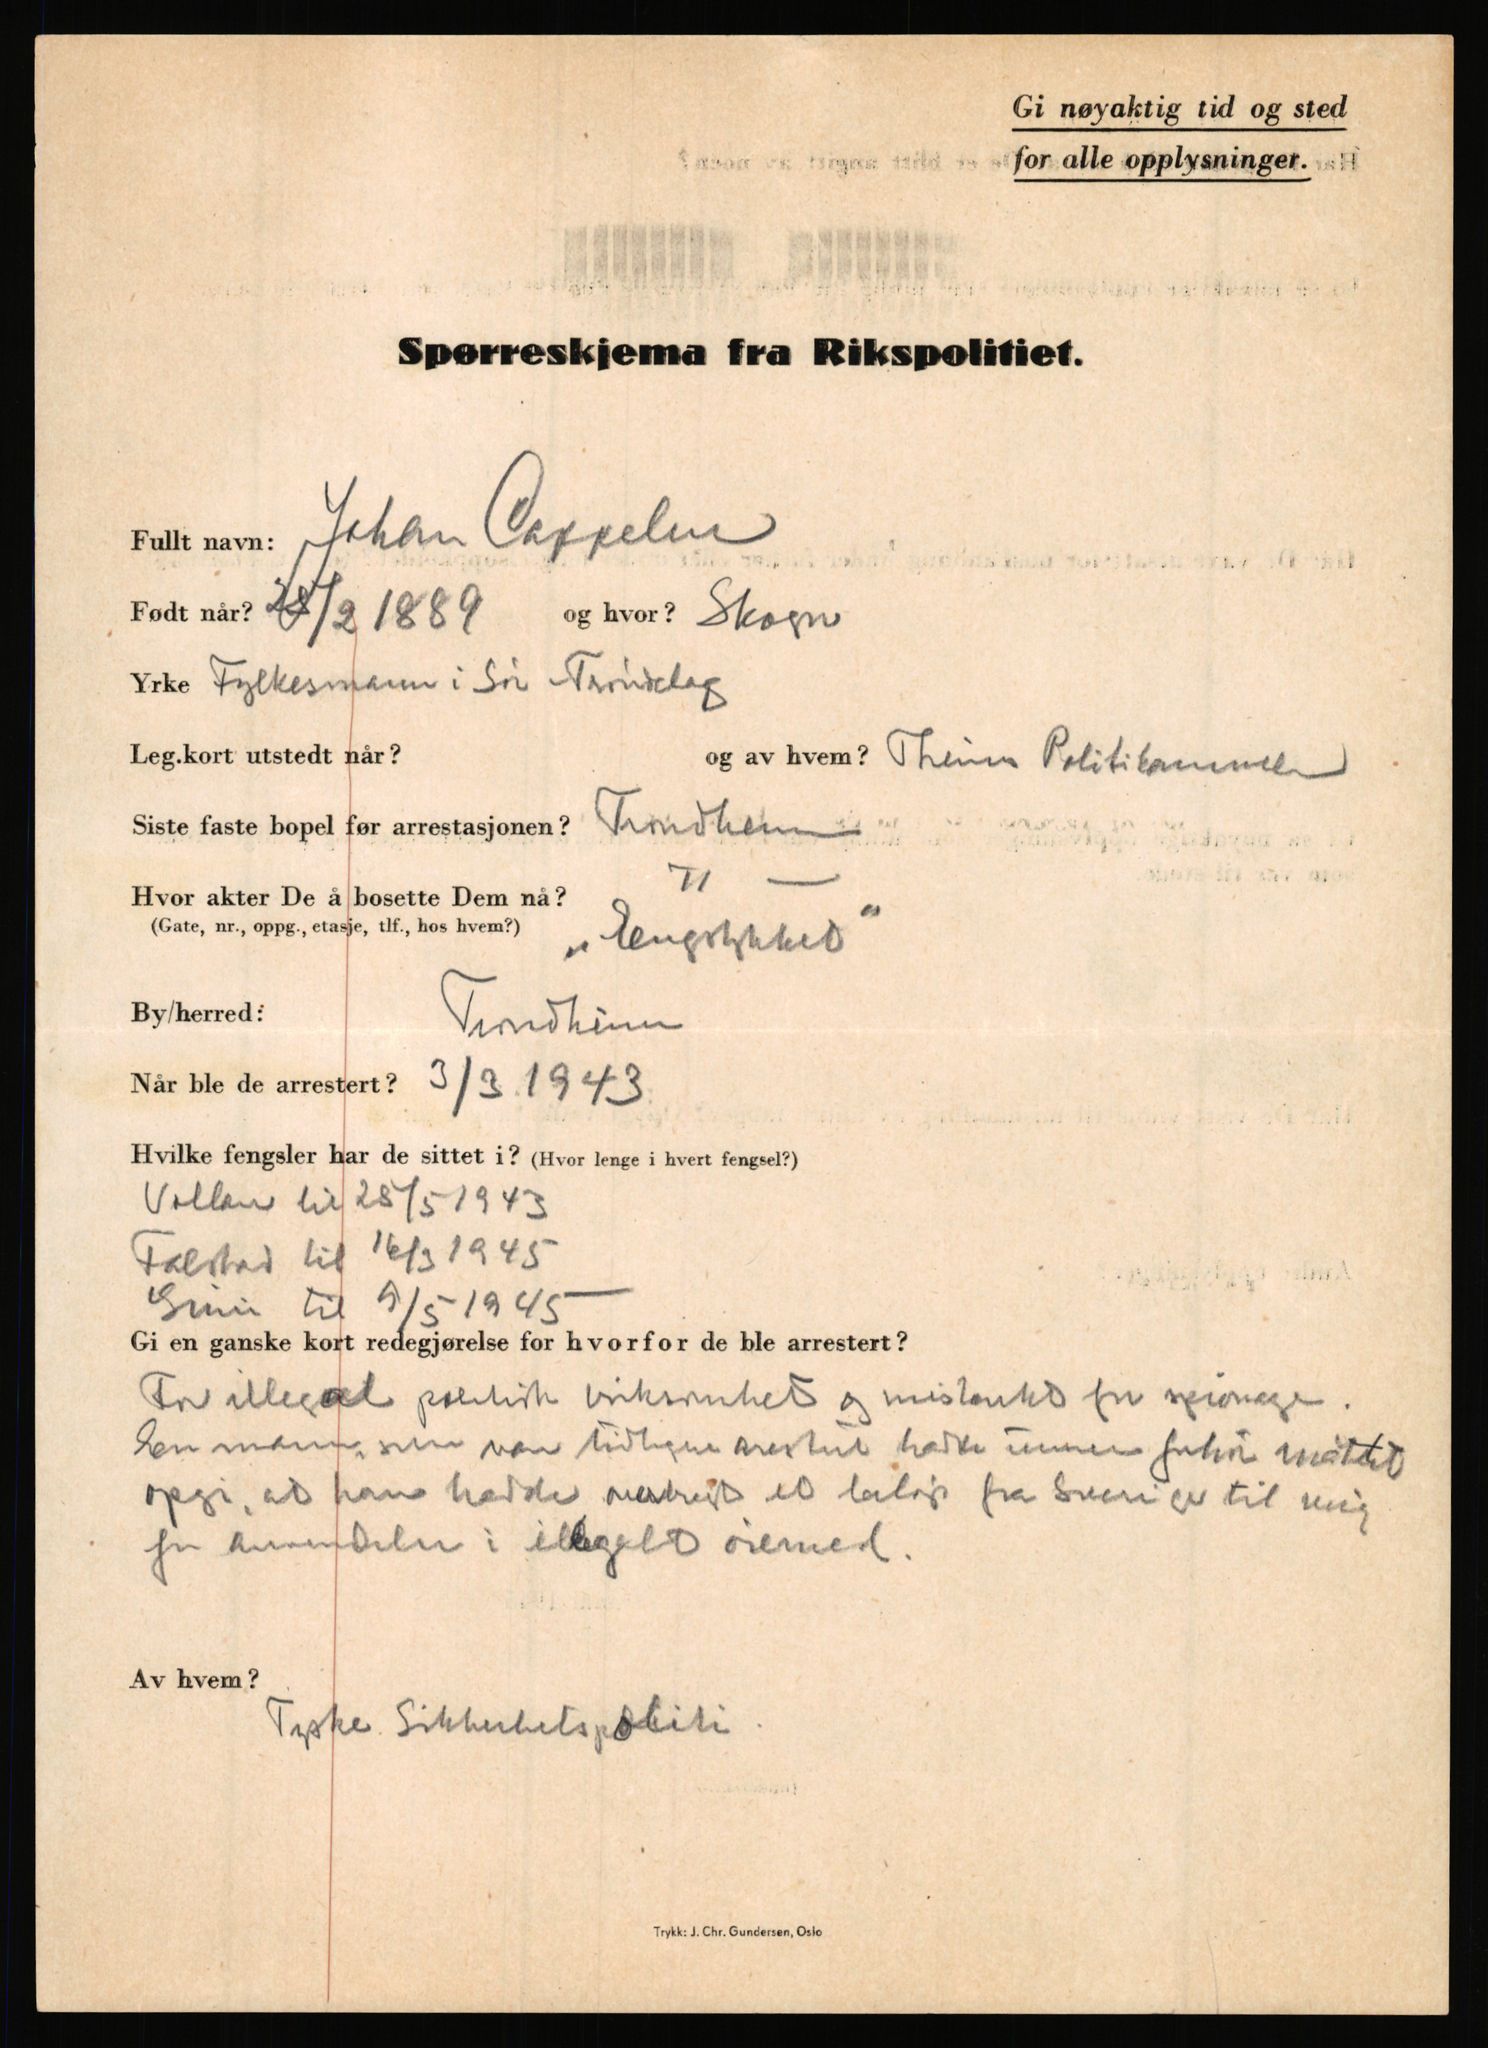 Gi nøyaktig tid og sted
for alle opplysninger.
Spørreskjema fra Rikspolitiet.
Fullt navn: Johan Cappelen
Født når? 28/2 1889 og hvor? Skogn
Yrke Fylkesmann i Sør Trøndelag
Leg.kort utstedt når? og av hvem? Theims Politikammer
Siste faste bopel før arrestasjonen? Trondheim
Hvor akter De å bosette Dem nå? " —
(Gate, nr., oppg., etasje, tlf., hos hvem?) „Engstykket"
By/herred: Trondheim
Når ble de arrestert? 3/3 1943
Hvilke fengsler har de sittet i? (Hvor lenge i hvert fengsel?)
Vollan til 28/5 1943
Falstad til 16/3 1945
Grini til 9/5 1945
Gi en ganske kort redegjørelse for hvorfor de ble arrestert?
For illegal politisk virksomhet og mistenkt for spionage.
En mann, som var tidligere arrestert hadde under forhør måttet
opgi, at han hadde overbragt et beløp fra Sverige til mig
for anvendelse i illegalt øiemed.
Av hvem?
Tyske Sikkerhetspoliti.
Trykk: J. Chr. Gundersen, Oslo